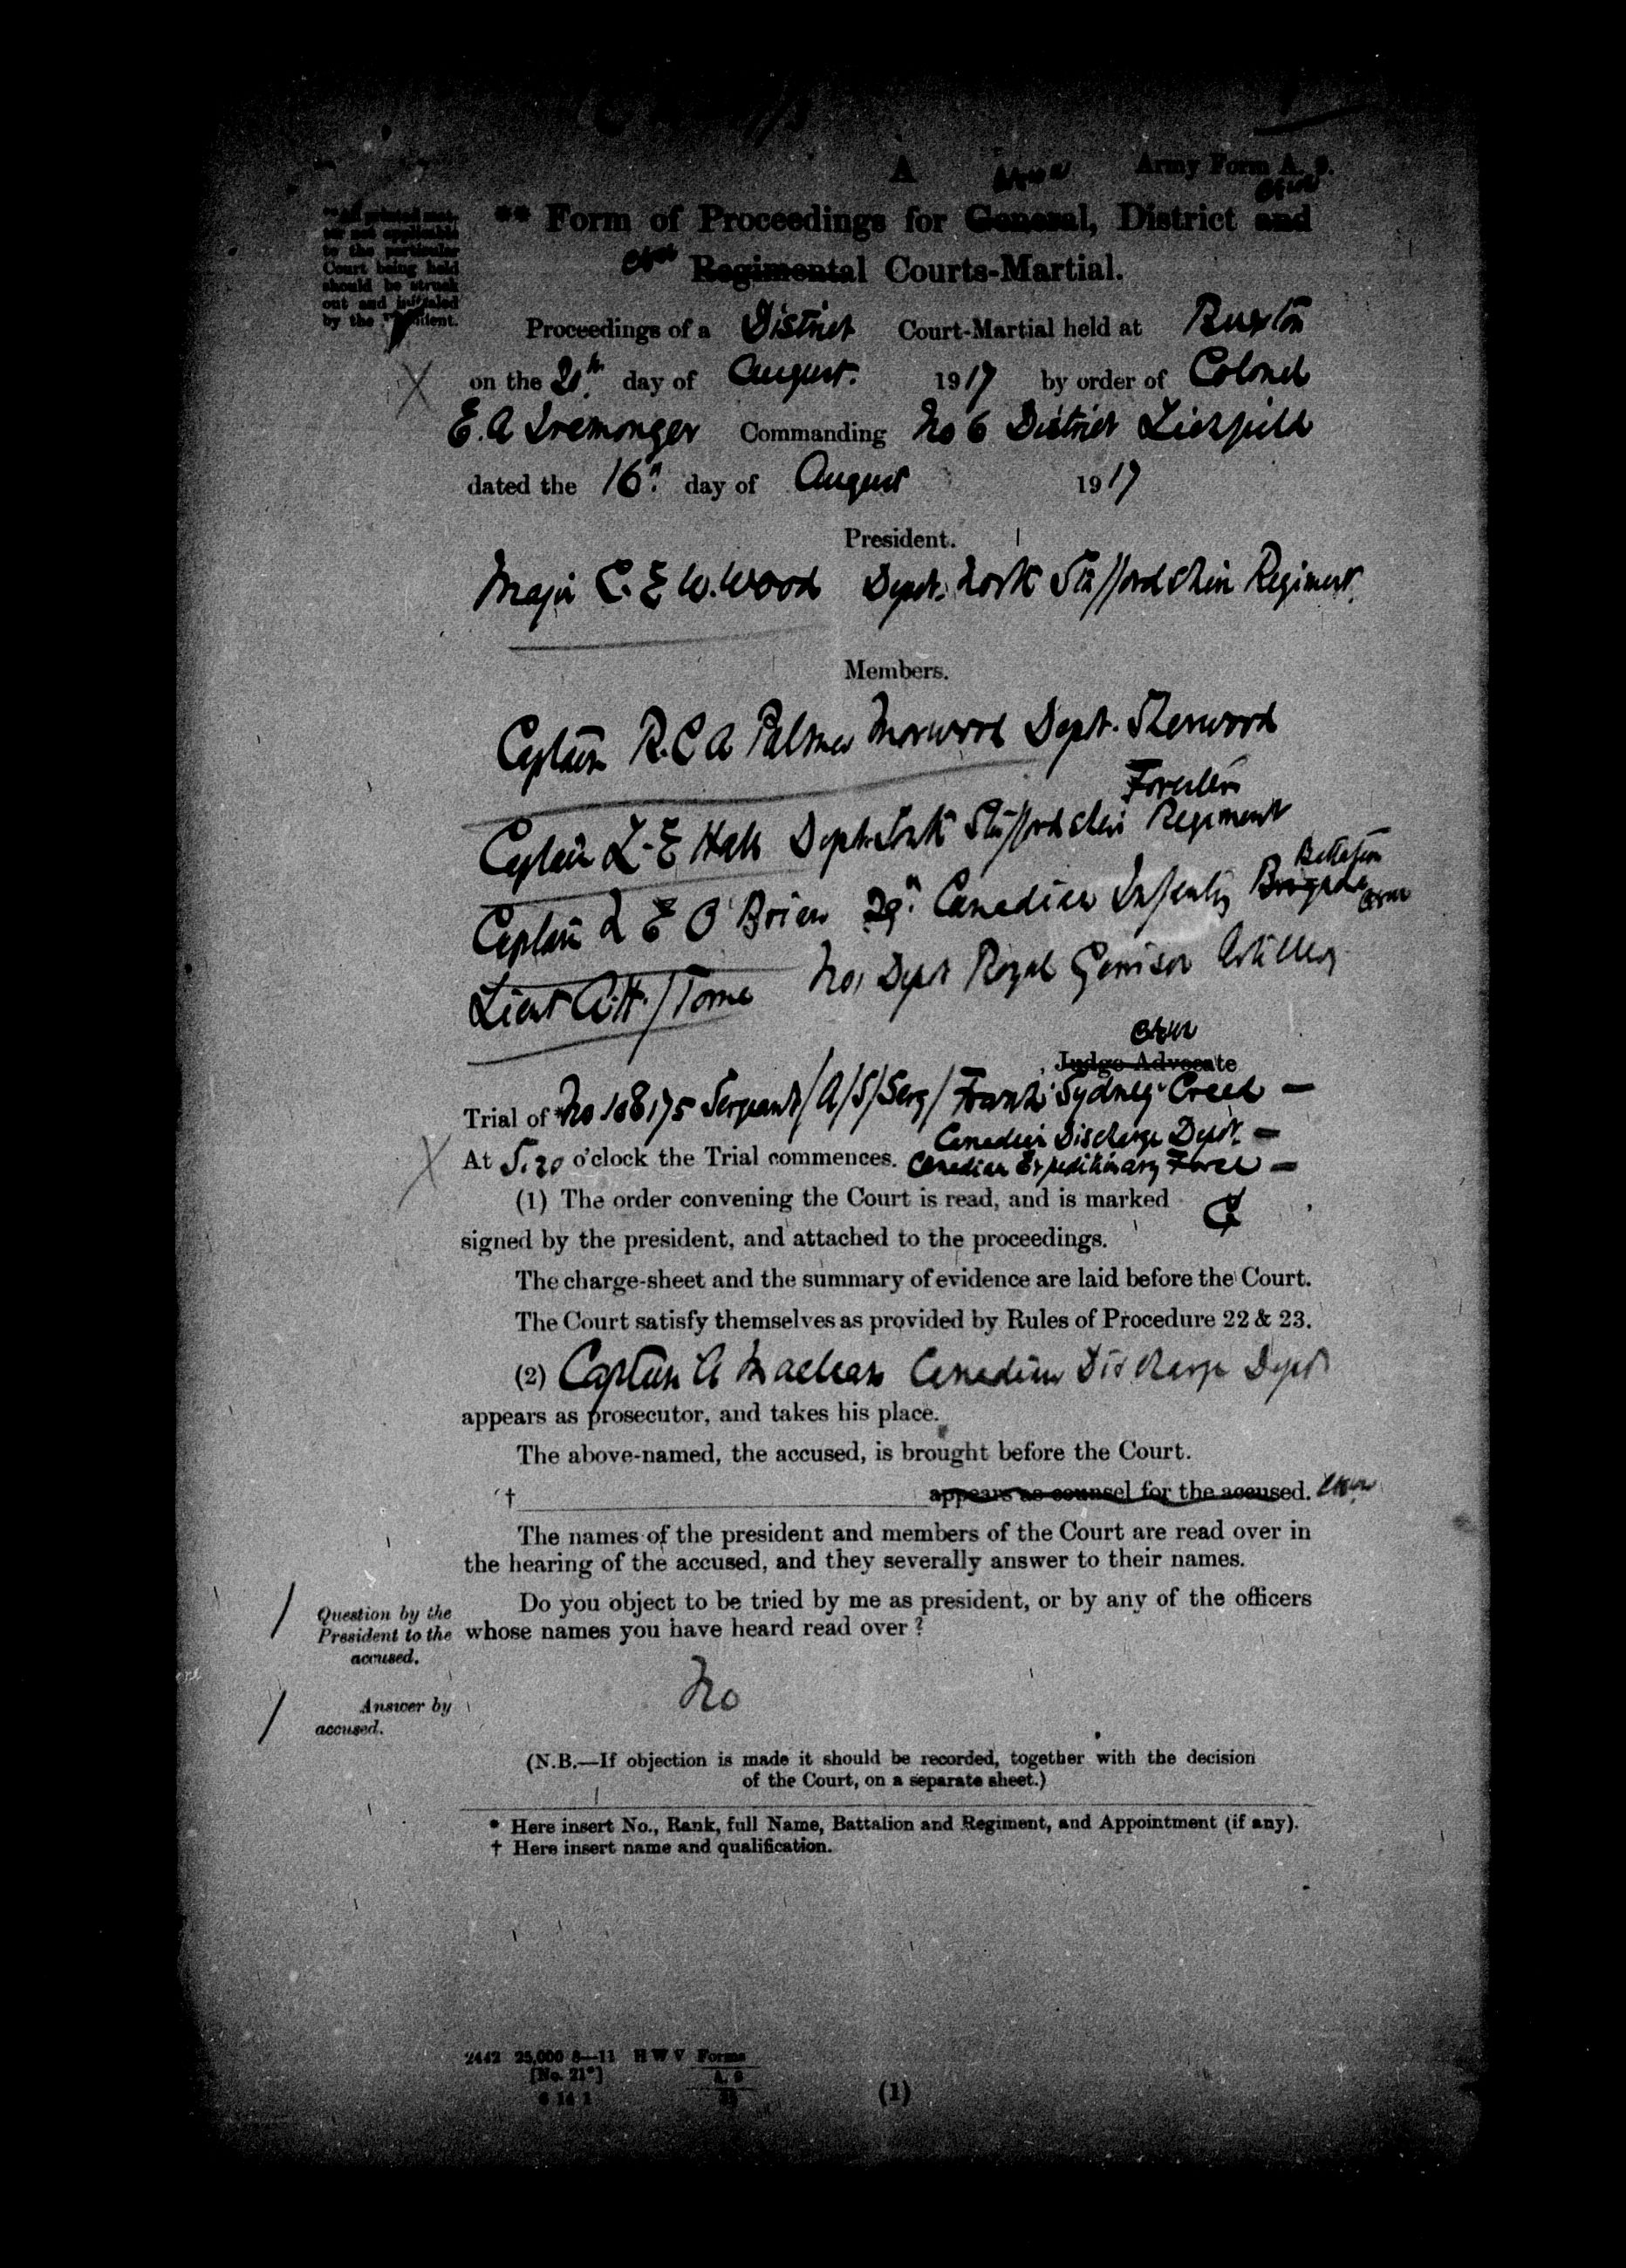 A
Army Form A. 9.
** Form of Proceedings for General, District and
Regimental Courts-Martial.
** All printed mat-
ter not applicable
to the particular
Court being held
should be struck
out and initialed
by the President.
Proceedings of a District Court-Martial held at Buxton
on the 20th day of August. 1917 by order of Colonel
E. A Iremonger Commanding No 6 District Lichfield
dated the 16th day of August 1917
President.
Major C. E W. Wood Depot. North Staffordshire Regiment.
Members.
Captain R. C A Palmer Morwood Depot. Sherwood
Foresters
Captain L. E Hall Depot South Staffordshire Regiment
Battalion
Captain L E O'Brien 29th Canadian Infantry Brigade
Lieut A. H. Tome No 1 Depot Royal Garrison Artillery
Judge-Advocate
Trial of *No 108175 Sergeant/A/S/Serg/ Frank Sydney Creed —
Canadian Discharge Depot. —
At 5.20 o'clock the Trial commences. Canadian Expeditionary Force —
(1) The order convening the Court is read, and is marked
signed by the president, and attached to the proceedings.
The charge-sheet and the summary of evidence are laid before the Court.
The Court satisfy themselves as provided by Rules of Procedure 22 & 23.
(2) Captain A Maclean Canadian Discharge Depot
appears as prosecutor, and takes his place.
The above-named, the accused, is brought before the Court.
† appears as counsel for the accused.
The names of the president and members of the Court are read over in
the hearing of the accused, and they severally answer to their names.
Question by the
President to the
accused.
Do you object to be tried by me as president, or by any of the officers
whose names you have heard read over?
Answer by
accused.
No
(N.B.—If objection is made it should be recorded, together with the decision
of the Court, on a separate sheet.)
* Here insert No., Rank, full Name, Battalion and Regiment, and Appointment (if any).
† Here insert name and qualification.
2442 25,000 8—11 H W V Forms
[No. 21*] A. 9
6 14 1
(1)